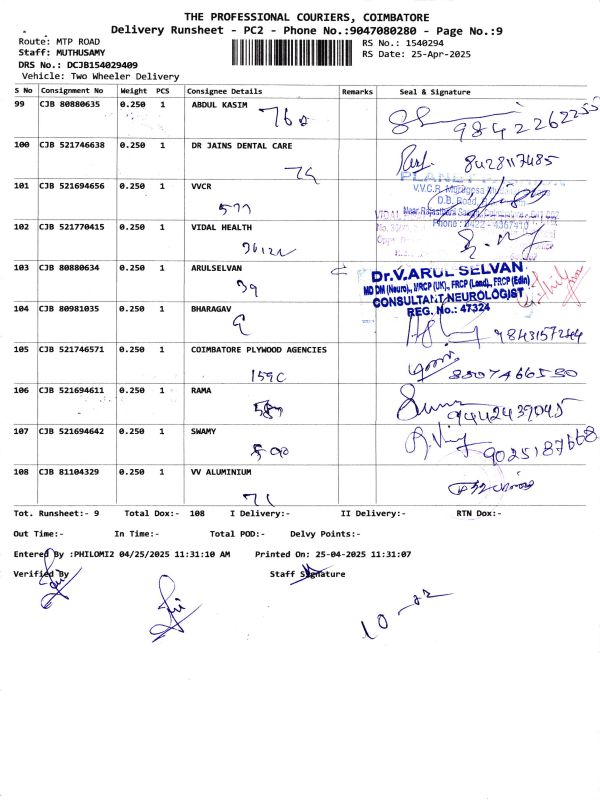 THE PROFESSIONAL COURIERS, COIMBATORE
Delivery Runsheet - PC2 - Phone No.:9047080280 - Page No.:9
Route: MTP ROAD RS No.: 1540294
Staff: MUTHUSAMY RS Date: 25-Apr-2025
DRS No.: DCJB154029409
Vehicle: Two Wheeler Delivery
S No Consignment No Weight PCS Consignee Details Remarks Seal & Signature
99 CJB 80880635 0.250 1 ABDUL KASIM
760 9842262255
100 CJB 521746638 0.250 1 DR JAINS DENTAL CARE
74 8428117485
101 CJB 521694656 0.250 1 VVCR
577
102 CJB 521770415 0.250 1 VIDAL HEALTH
103 CJB 80880634 0.250 1 ARULSELVAN
39
Dr.V.ARUL SELVAN
MD DM (Neuro)., MRCP (UK)., FRCP (Lond)., FRCP (Edin)
CONSULTANT NEUROLOGIST
REG. No.: 47324
104 CJB 80981035 0.250 1 BHARAGAV
9 9843157244
105 CJB 521746571 0.250 1 COIMBATORE PLYWOOD AGENCIES
159C 8807466550
106 CJB 521694611 0.250 1 RAMA
9442439045
107 CJB 521694642 0.250 1 SWAMY
9025187668
108 CJB 81104329 0.250 1 VV ALUMINIUM
71
Tot. Runsheet:- 9 Total Dox:- 108 I Delivery:- II Delivery:- RTN Dox:-
Out Time:- In Time:- Total POD:- Delvy Points:-
Entered By :PHILOMI2 04/25/2025 11:31:10 AM Printed On: 25-04-2025 11:31:07
Verified By Staff Signature
10-22